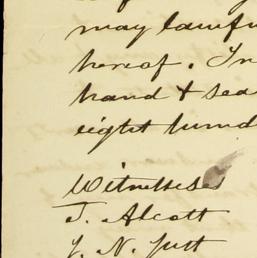 may lawfu
hereof. In
hand & sea
eight hund
Witnesses
J. Alcott
J. N. Jutt